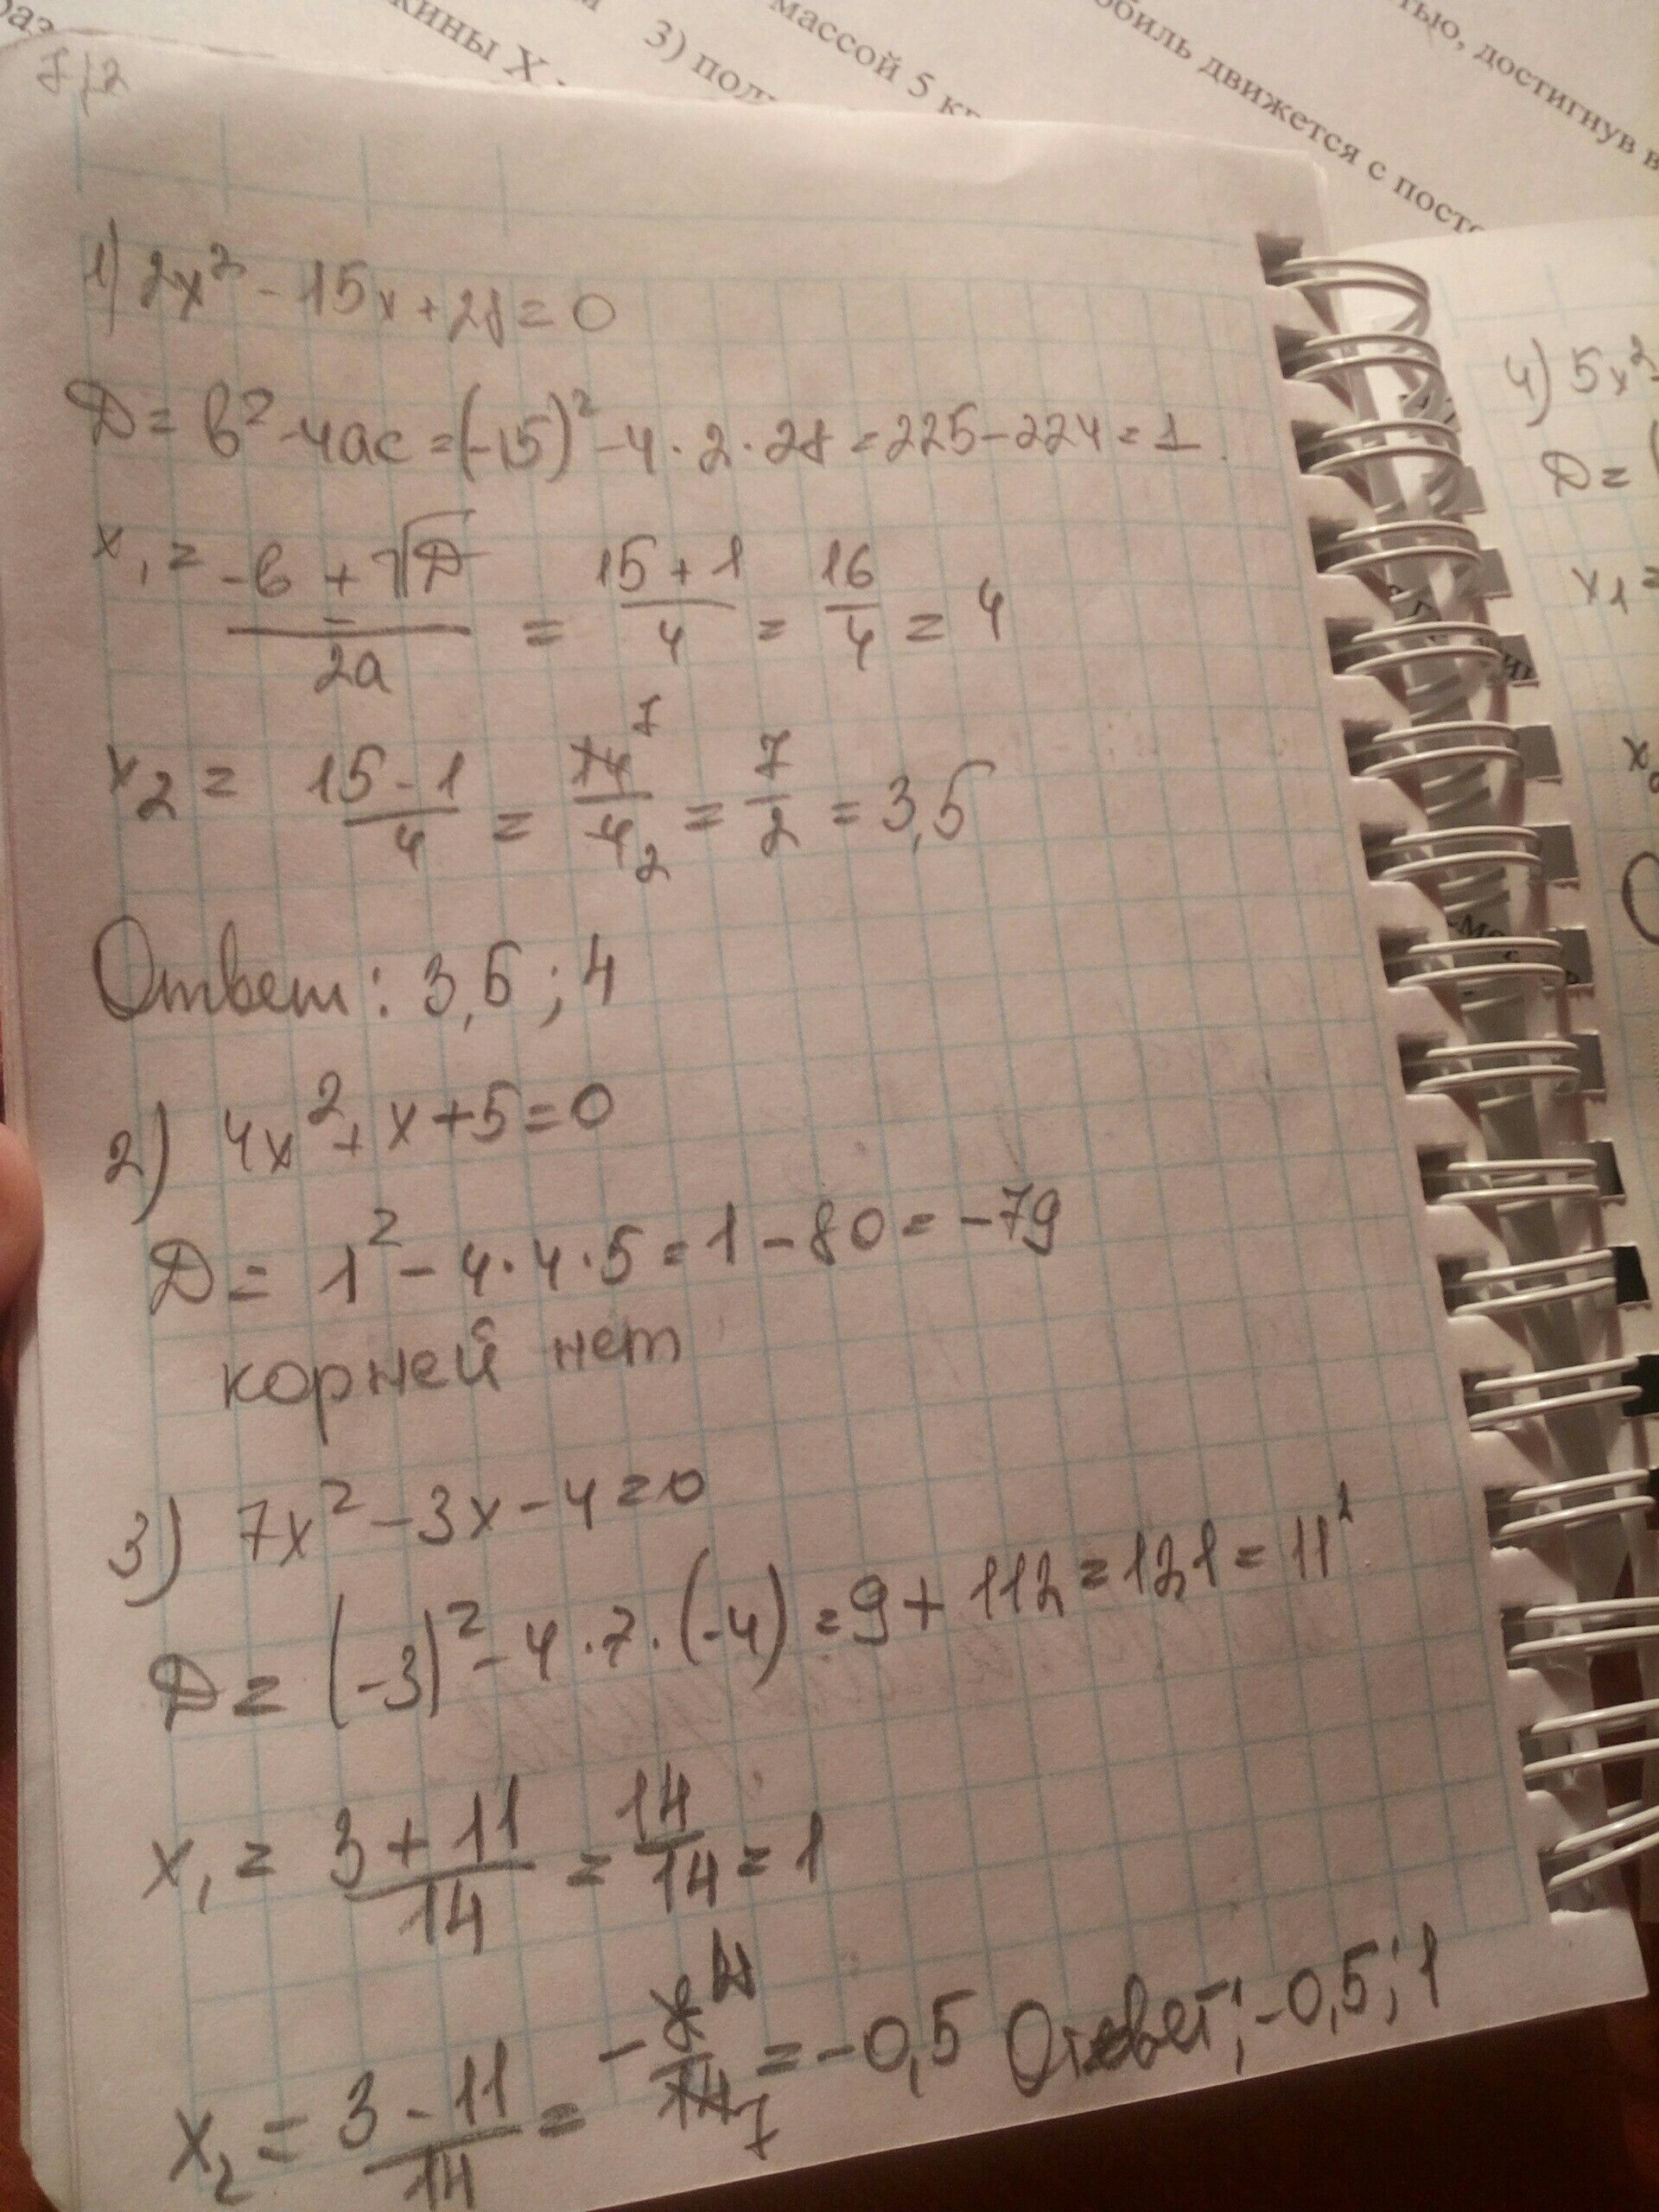 раз
кины X
3) под
массой 5 кг
обиль движется с посто
тью, достигнув в
1) 2x² - 15x + 28 = 0
D = b² - 4ac = (-15)² - 4 · 2 · 28 = 225 - 224 = 1
x₁ = (-b ± √D)/2a = (15 + 1)/4 = 16/4 = 4
x₂ = (15 - 1)/4 = 14/4 = 7/2 = 3,5
Ответ: 3,5 ; 4
2) 4x² + x + 5 = 0
D = 1² - 4 · 4 · 5 = 1 - 80 = -79
корней нет
3) 7x² - 3x - 4 = 0
D = (-3)² - 4 · 7 · (-4) = 9 + 112 = 121 = 11²
x₁ = (3 + 11)/14 = 14/14 = 1
x₂ = (3 - 11)/14 = -8/14 = -0,5 Ответ: -0,5; 1
4) 5x²
D =
x₁ =